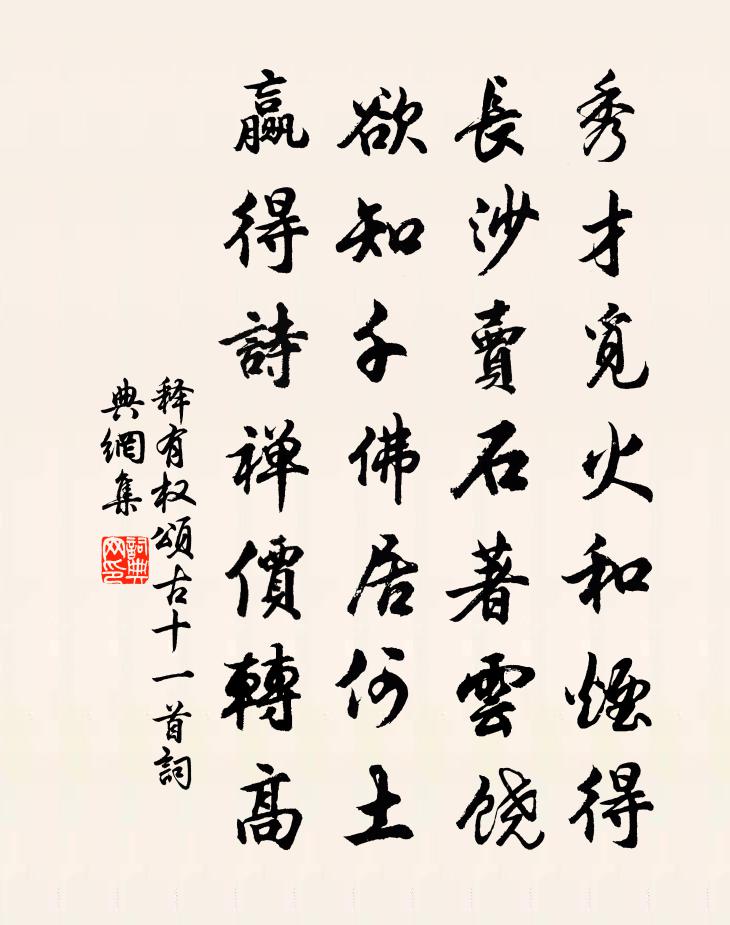 秀才覓火和煙得
長沙賣石著雲饶
欲知千佛居何土
贏得詩禅價轉高
释有权頌古十一首詞
典網集
詞典
网印